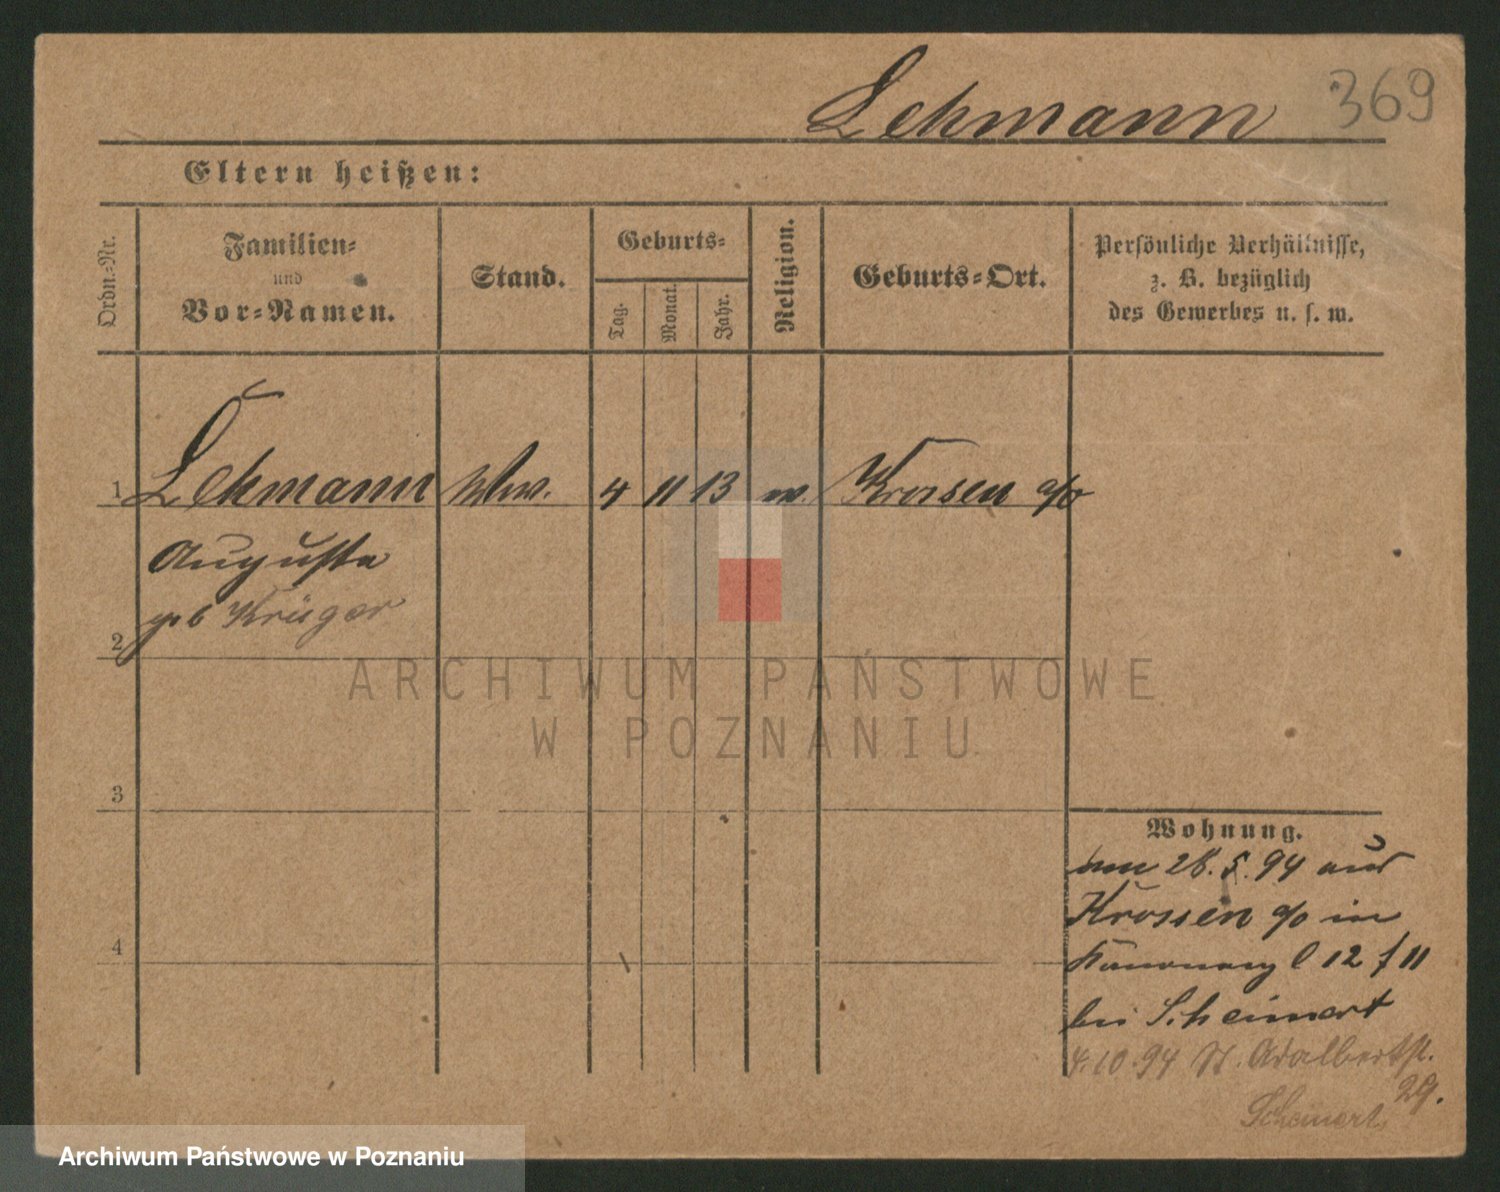 Lehmann 369
Eltern heißen:
Ordn.-Nr.
Familien-
und
Vor-Namen.
Stand.
Geburts-
Tag.
Monat.
Jahr.
Religion.
Geburts-Ort.
Persönliche Verhältnisse,
z. B. bezüglich
des Gewerbes u. s. w.
1 Lehmann Wwe. 4 11 13 ev. Krossen a/o
Auguste
geb Krüger
2
3
4
Wohnung.
am 28.5.94 aus
Krossen a/o in
l 12 f 11
bei Scheinert
4.10.94 St. Adalbertst.
29.
Scheinert
ARCHIWUM PAŃSTWOWE
W POZNANIU
Archiwum Państwowe w Poznaniu